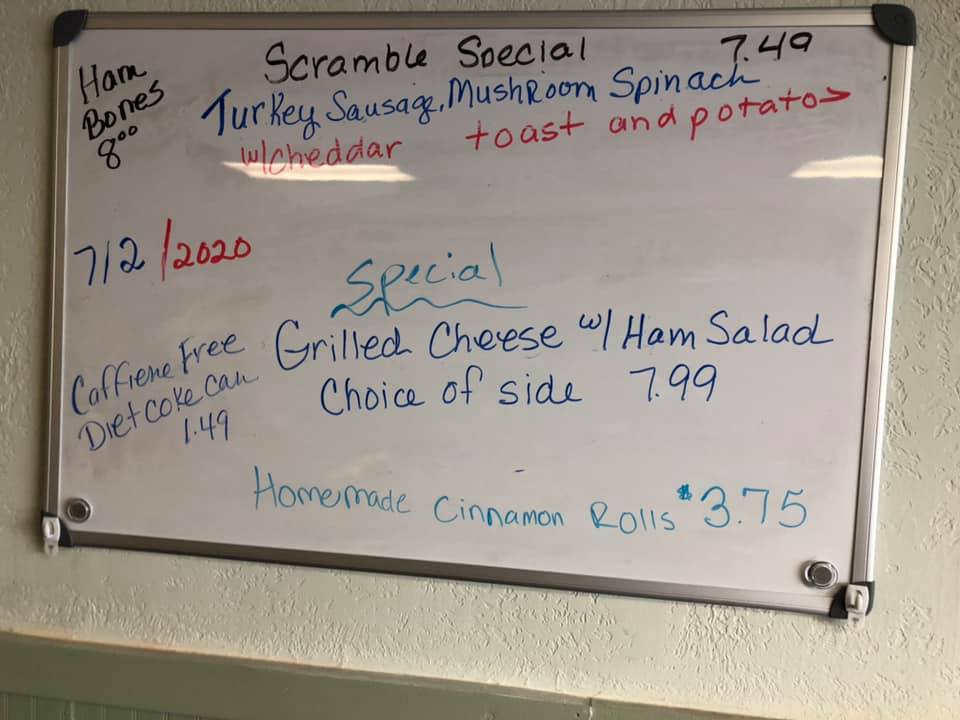 Scramble Special 7.49
Turkey Sausage, MushRoom Spinach
w/cheddar toast and potatos
Ham
Bones
8⁰⁰
7/2/2020
Special
Grilled Cheese w/ Ham Salad
Choice of side 7.99
Caffiene Free
Diet coke can
1.49
Homemade Cinnamon Rolls $3.75